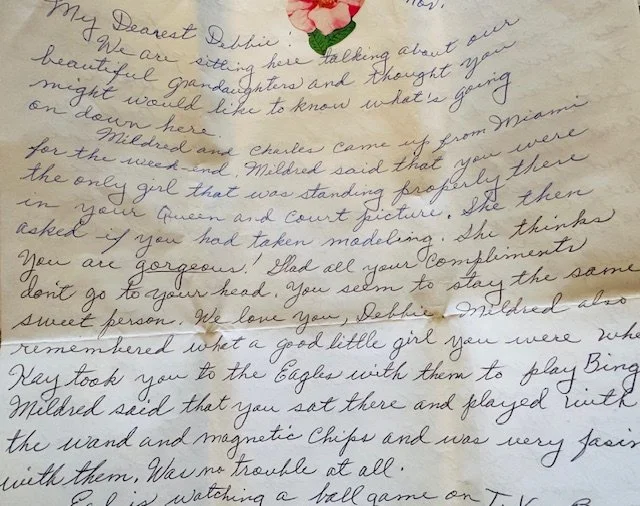 Nov.
My Dearest Debbie!
We are sitting here talking about our
beautiful Grandaughters and thought you
might would like to know what's going
on down here.
Mildred and Charles came up from Miami
for the week-end. Mildred said that you were
the only girl that was standing properly there
in your Queen and Court picture. She then
asked if you had taken modeling. She thinks
you are gorgeous! Glad all your compliments
don't go to your head. You seem to stay the same
sweet person. We love you, Debbie. Mildred also
remembered what a good little girl you were whe
Kay took you to the Eagles with them to play Bing
Mildred said that you sat there and played with
the wand and magnetic chips and was very fasin
with them. Was no trouble at all.
is watching a ball game on T.V.